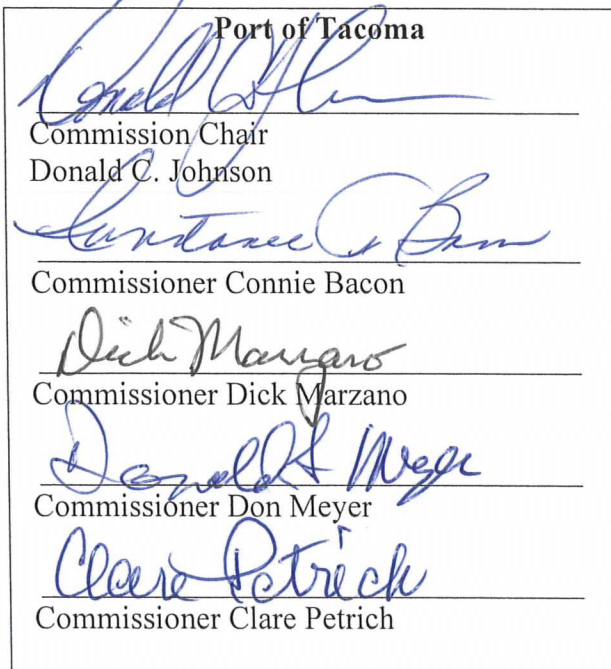 Port of Tacoma
Donald C. Johnson
Commission Chair
Donald C. Johnson
Constance T Bacon
Commissioner Connie Bacon
Dick Marzano
Commissioner Dick Marzano
Donald G Meyer
Commissioner Don Meyer
Clare Petrich
Commissioner Clare Petrich